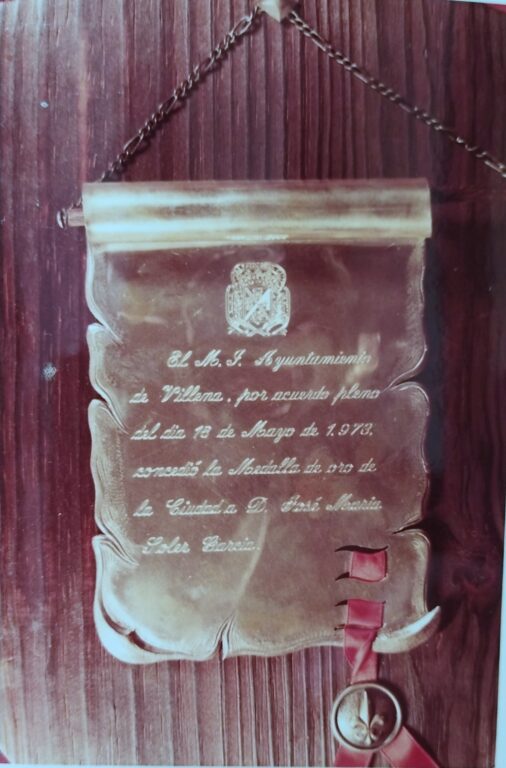 El M. I. Ayuntamiento
de Villena, por acuerdo pleno
del dia 18 de Mayo de 1.973,
concedió la Medalla de oro de
la Ciudad a D. José Maria
Soler Garcia.